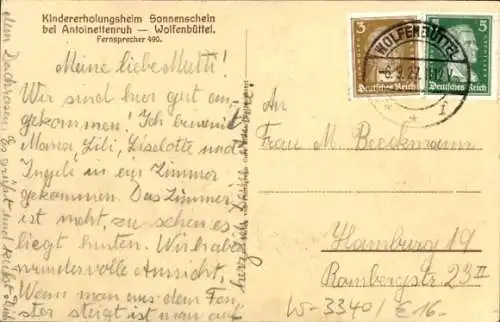 Kindererholungsheim Sonnenschein
bei Antoinettenruh — Wolfenbüttel.
Fernsprecher 490.
Meine liebe Mutti!
Wir sind hier gut an
gekommen! Ich bin mit
Mama, Lili, Liselotte und
Ingeli in ein Zimmer
gekommen. Das Zimmer
ist nicht, zu sehen es
liegt hinten. Wir haben
wundervolle Aussicht,
Wenn man aus dem Fen
ster steigt ist man auf
dem Dach
Es grüßt und küsst Dich
herzlich Deine
3
Deutsches Reich
5
Deutsches Reich
WOLFENBÜTTEL
-6.9.27.
An
Frau M. Beckmann
Hamburg 19
Rombergstr. 23 II
W-3340/ €16-